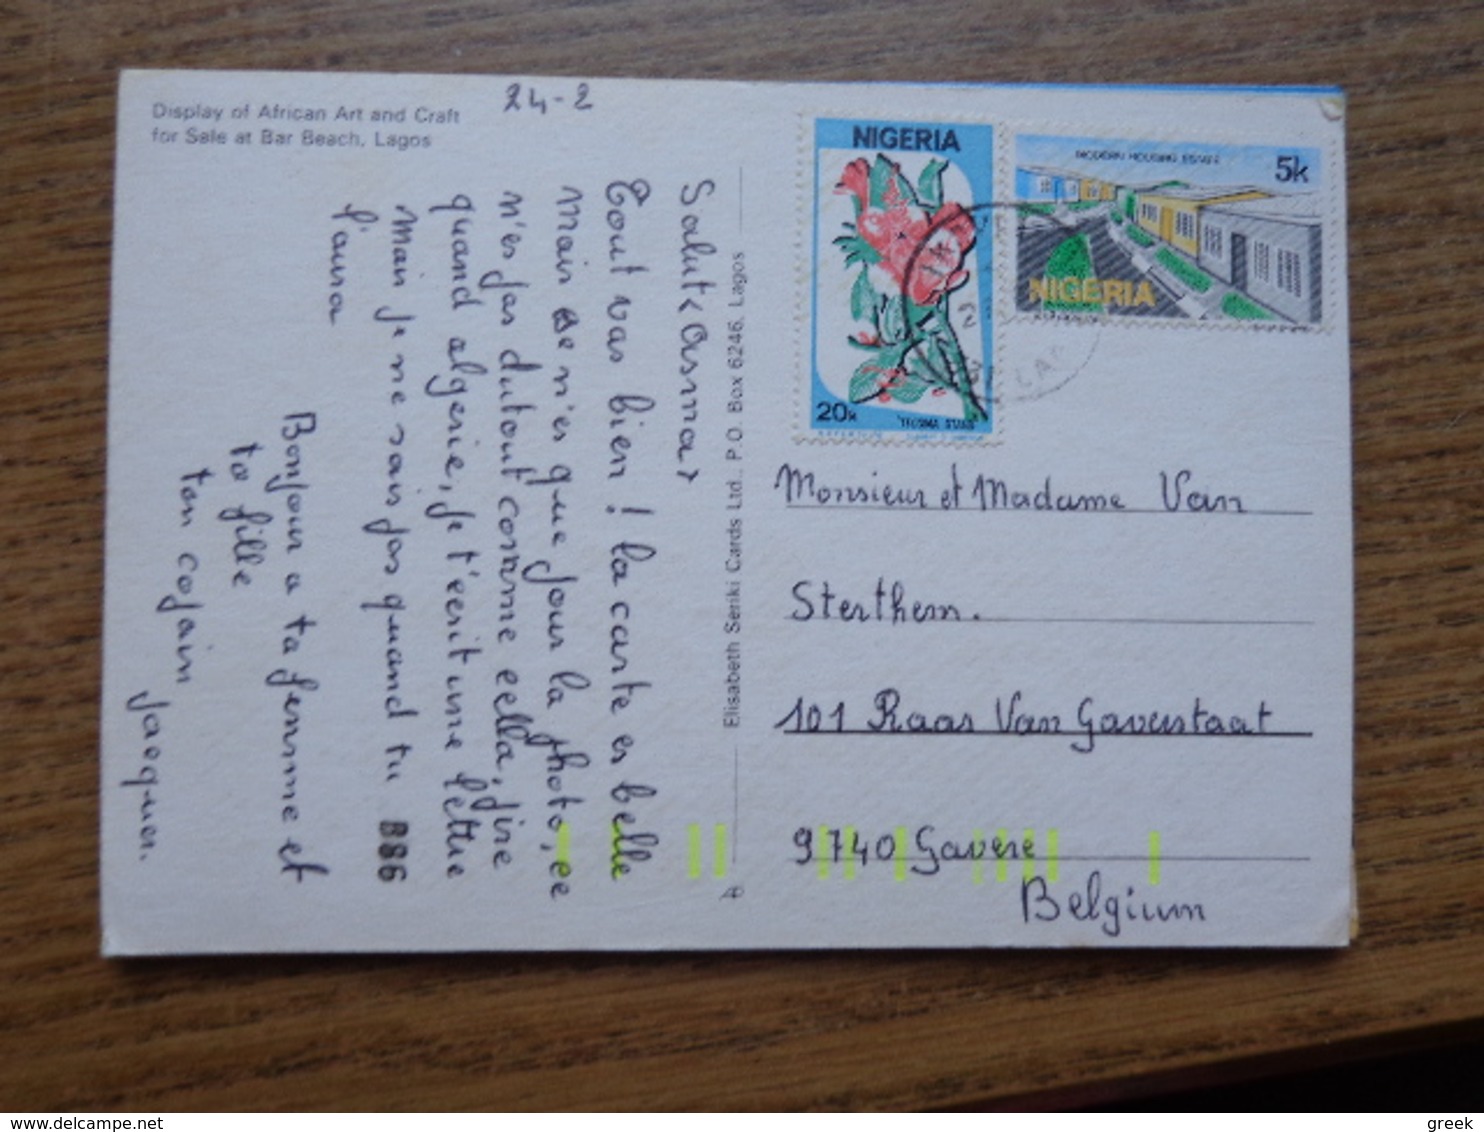 Display of African Art and Craft
for Sale at Bar Beach, Lagos
24-2
Salut
Tout vas bien ! la carte es belle
mais se n'es que jour la photo, ce
n'es pas dutout comme cella, jire
quand algerie, je t'ecrit une lettre
mais je ne sais pas quand tu
l'aura
Bonjour a ta femme et
ta fille
ton copain
Jacques.
B86
Elisabeth Seriki Cards Ltd., P.O. Box 6246, Lagos
NIGERIA
20k
MODERN HOUSING ESTATE
5k
NIGERIA
Monsieur et Madame Van
Sterthem.
101 Raas Van Gaverstaat
9740 Gavere
Belgium
greek